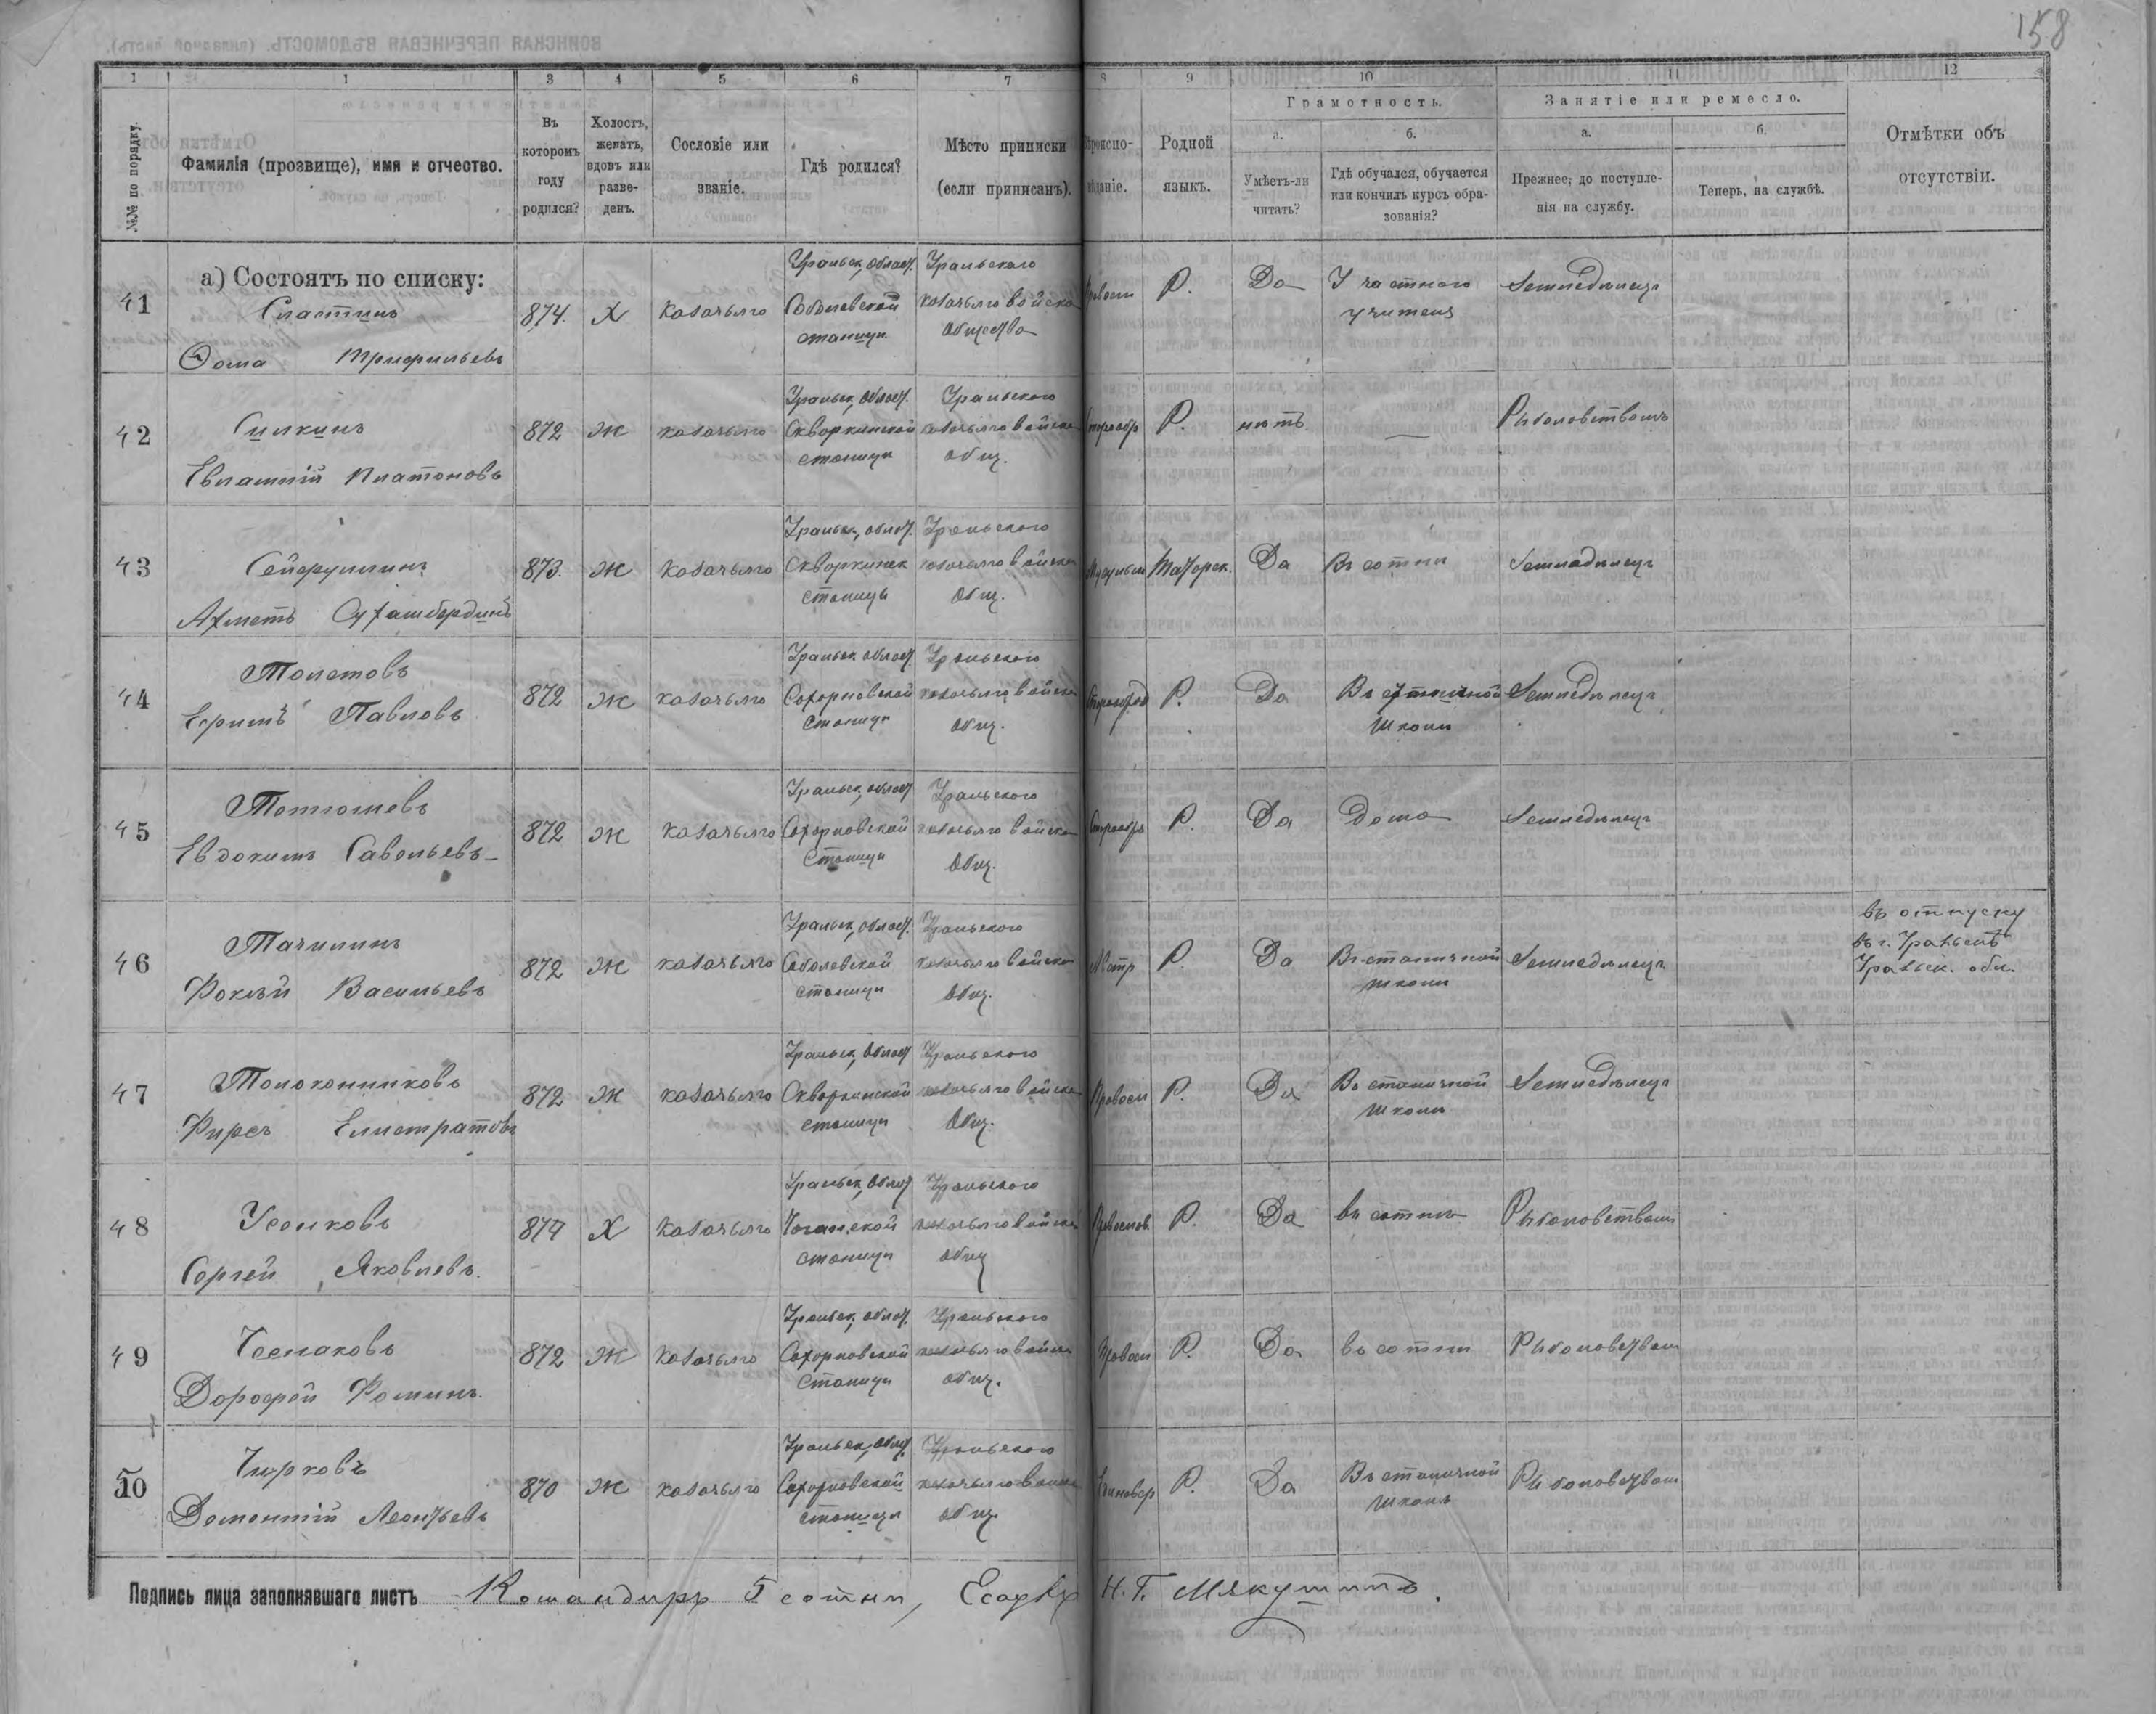 158
1 1 3 4 5 6 7 8 9 10 11 12
№№ по порядку.
Фамилія (прозвище), имя и отчество.
Въ которомъ году родился?
Холостъ, женатъ, вдовъ или разведенъ.
Сословіе или званіе.
Гдѣ родился?
Мѣсто приписки (если приписанъ).
Родной языкъ.
Грамотность.
а. Умѣетъ-ли читать?
б. Гдѣ обучался, обучается или кончилъ курсъ образованія?
Занятіе или ремесло.
а. Прежнее, до поступленія на службу.
б. Теперь, на службѣ.
Отмѣтки объ отсутствіи.
а) Состоятъ по списку:
41 Сластинъ Ѳома Трифильевъ 874. Х казачьяго Уральск, област. Соболевской станицы Уральского казачьяго войска общества Правосл Р. Да У частного учителя Земледѣлецъ
42 Силкинъ Евлампій Платоновъ 872 Ж казачьяго Уральск, област. Скворкинской станицы Уральского казачьяго войска общ. Старообр Р. нѣтъ — Рыболовствомъ
43 Сейфуллинъ Ахметъ 873. Ж казачьяго Уральск, област. Скворкинск станицы Уральского казачьяго войска общ. Мусульм Татарск. Да Въ сотни Земледѣлецъ
44 Толстовъ Ефимъ Павловъ 872 Ж казачьяго Уральск област. Сахарновской станицы Уральского казачьяго войска общ. Старообряд Р. Да Въ станичной школи Земледѣлецъ
45 Евдокимъ Савельевъ 872 Ж казачьяго Уральск, област Сахарновской станицы Уральского казачьяго войска общ. Старообря Р. Да Дома Земледѣлецъ
46 Тачилинъ Фокѣй Васильевъ 872 Ж казачьяго Уральск, област. Соболевской станицы Уральского казачьяго войска общ. Р. Да Въ станичной школи Земледѣлецъ въ отпуску въ г. Уральскѣ Уральск. обл.
47 Толоконниковъ Фирсъ Елистратовъ 872 Ж казачьяго Уральск, област Скворкинской станицы Уральского казачьяго войска общ. Правосл Р. Да Въ станичной школи Земледѣлецъ
48 Усолковъ Сергей Яковлевъ. 874 Х казачьяго Уральск, област Чаганской станицы Уральского казачьяго войска общ Православ Р. Да въ сотни Рыболовствомъ
49 Чеснаковъ Дорофей Фоминъ. 872 Ж казачьяго Уральск, област. Сахарновской станицы Уральского казачьяго войска общ. Правосл Р. Да въ сотни Рыболовством
50 Чирковъ Дометій Леонтьевъ 870 Ж казачьяго Уральск, област. Сахарновской станицы Уральского казачьяго войска общ. Единовер Р. Да Въ станичной школѣ Рыболовством
Подпись лица заполнявшаго листъ Командиръ 5 сотни, Есаулъ Н. Г. Мякушинъ.